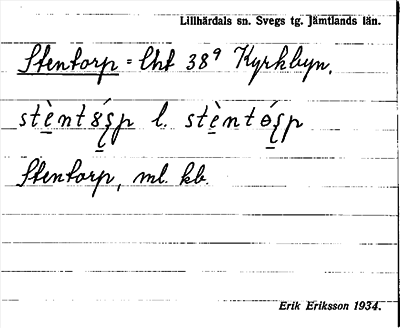 Lillhärdals sn. Svegs tg. Jämtlands län.
Stentorp = lht 38⁹ Kyrkbyn.
stè̱nt l. stè̱nt
Stentorp, ml. kb.
Erik Eriksson 1934.